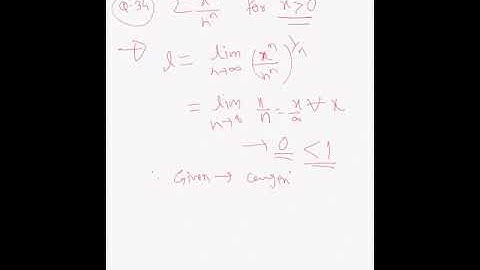 Q-34 Σ x^n/n^n for x>0
→ l = lim n→∞ (x^n/n^n)^1/n
= lim n→∞ x/n = x/∞ ∀ x
→ 0 < 1
∴ Given →